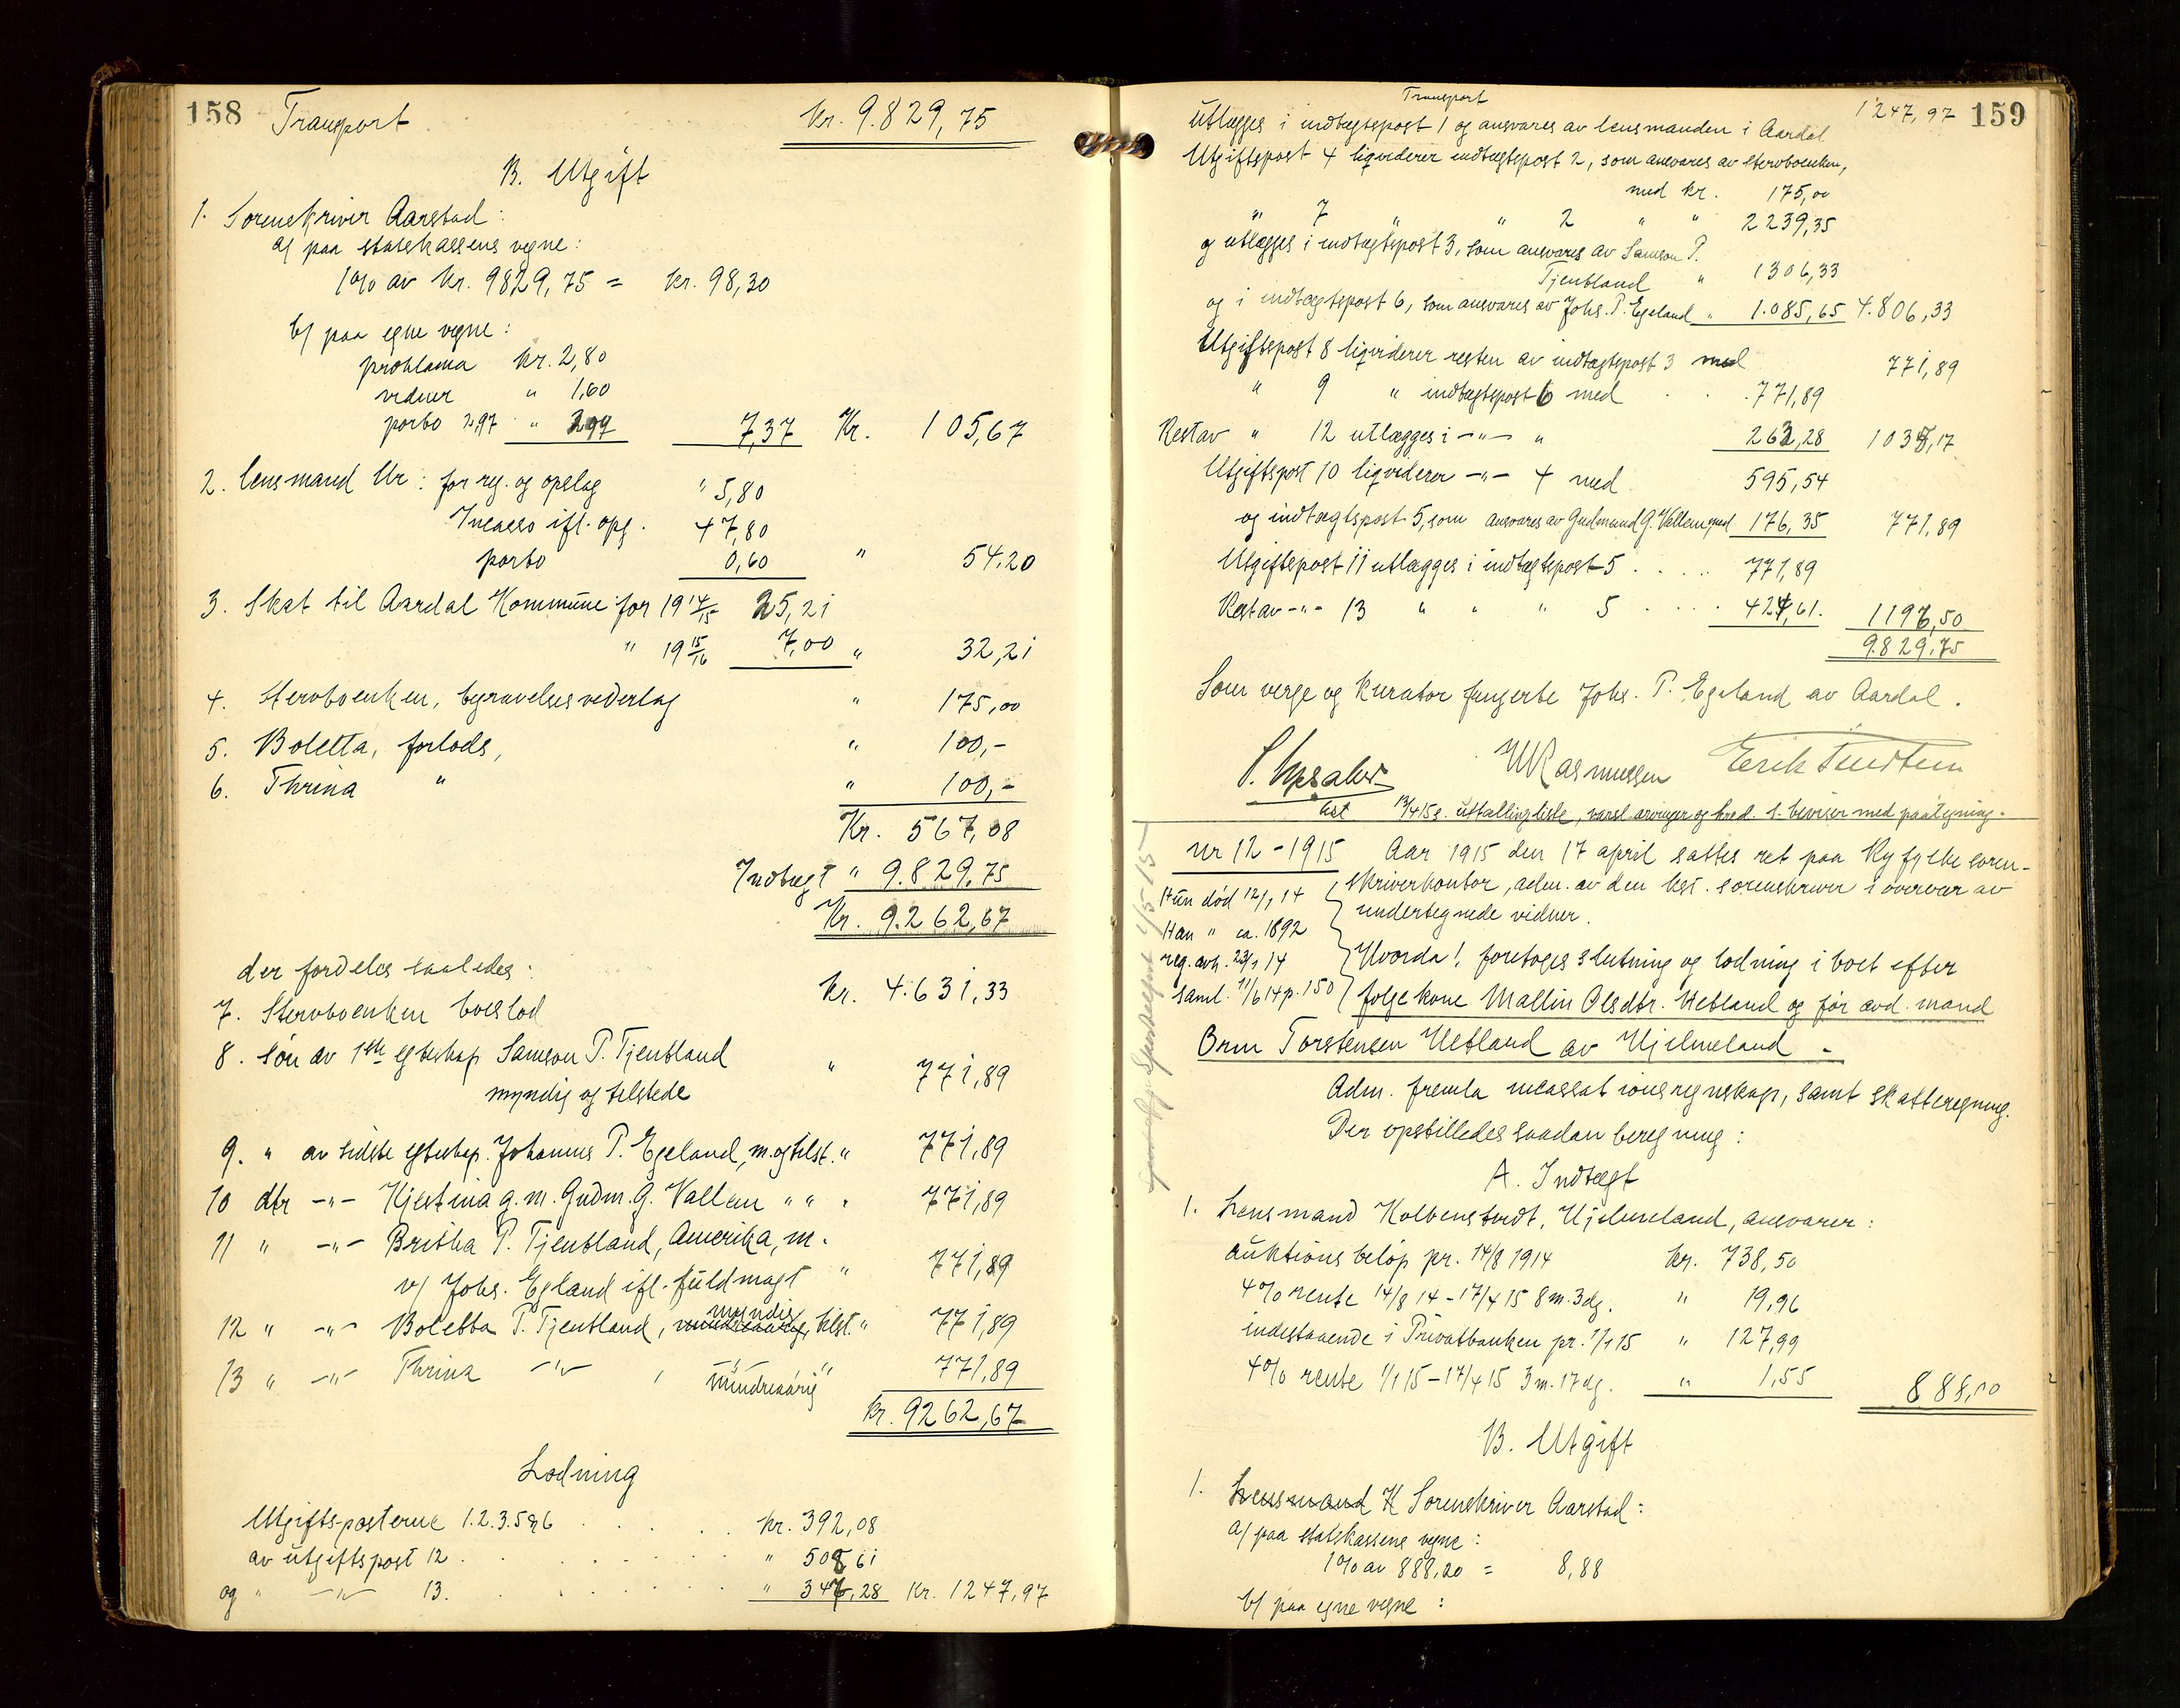 158 Transport kr. 9.829,75
B. Utgift
1. Sorenskriver Aarstad:
a/ paa statskassens vegne:
1% av kr. 9829,75 = kr. 98,30
b/ paa egne vegne:
proklama kr. 2,80
vidner " 1,60
porto 2,97 " 2,97 7,37 Kr. 105,67
2. Lensmand Ur: for reg. og opslag " 5,80
Incasso ifl. opg. 47,80
porto 0,60 " 54,20
3. Skat til Aardal Kommune for 19 14/15 25,21
" 19 15/16 7,00 " 32,21
4. Stervboenken, begravelsesvederlag " 175,00
5. Boletta, forlods, " 100,-
6. Thrina " " 100,-
Kr. 567,08
Indtægt " 9.829,75
Kr. 9.262,67
der fordeles saaledes:
7. Stervboenken boeslod kr. 4.631,33
8. søn av 1ste egteskap Samson P. Tjentland
myndig og tilstede " 771,89
9. " av sidste egteskap. Johannes P. Egeland, m. og tilst. " 771,89
10 dtr -"- Kjestina g. m. Gudm. G. Vallem " " " 771,89
11 " -"- Britha P. Tjentland, Amerika, m.
v/ Johs. Egland ifl. fuldmagt " 771,89
myndig
12 " -"- Boletta P. Tjentland, mindreaarig, tilst. " 771,89
13 " -"- Thrina -"- , -"- "
mindreaarig 771,89
kr. 9262,67
Lodning
Utgiftsposterne 1.2.3.5 & 6 . . . kr. 392,08
av utgiftspost 12 . . . " 508 61
og " -"- 13. . . . " 347,28 kr. 1247,97
Transport 1247,97 159
utlægges i indtægtspost 1 og ansvares av lensmanden i Aardal
Utgiftspost 4 liqviderer indtægtspost 2, som ansvares av stervboenken,
med kr. 175,00
" 7 " " 2 " " 2239,35
og utlægges i indtægtspost 3, som ansvares av Samson P.
Tjentland " 1306,33
og i indtægtspost 6, som ansvares av Johs. P. Egeland " 1.085,65 4.806,33
Utgiftspost 8 liqviderer resten av indtægtspost 3 med 771,89
" 9 " indtægtspost 6 med . . . 771,89
Rest av " 12 utlægges i -"- " 263,28 1035,17
Utgiftspost 10 liqviderer -"- 4 med 595,54
og indtægtspost 5, som ansvares av Gudmund G. Vallem, med 176,35 771,89
Utgiftspost 11 utlægges i indtægtspost 5 . . . . 771,89
Rest av -"- 13 " " " 5 . . . 424,61. 1196,50
9829,75
Som verge og kurator fungerte Johs. P. Egeland av Aardal.
MRasmussen
13/4 15 s. utstillingsliste, varsl. arvinger og kred. s. beviser med paategning.
nr 12 - 1915 Aar 1915 den 17 april sattes ret paa Ryfylke soren-
skriverkontor, adm. av den kst. sorenskriver i overvær av
undertegnede vidner.
Hun død 12/1 14
Han " ca. 1892
reg. avh. 23/1 14
saml. 11/6 14 p. 150
Hvorda! foretoges slutning og lodning i boet efter
folgekone Mallin Olsdtr. Hetland og før avd. mand
Orm Torstensen Hetland av Hjelmeland -
Adm. fremla incassationsregnskap, samt skatteregning.
Der opstilledes saadan beregning:
A. Indtægt
1. Lensmand Kolbenstvedt, Hjelmeland, ansvarer:
auktionsbeløp pr. 14/8 1914 kr. 738,50
4% rente 14/8 14 - 17/4 15 8 m. 3 dg. " 19,96
indestaaende i Privatbanken pr. 1/1 15 " 127,99
4% rente 1/1 15 - 17/4 15 3 m. 17 dg. " 1,55 888,00
B. Utgift
1. Lensmand K Sorenskriver Aarstad:
a/ paa statskassens vegne:
1% av 888,20 = 8,88
b/ paa egne vegne: